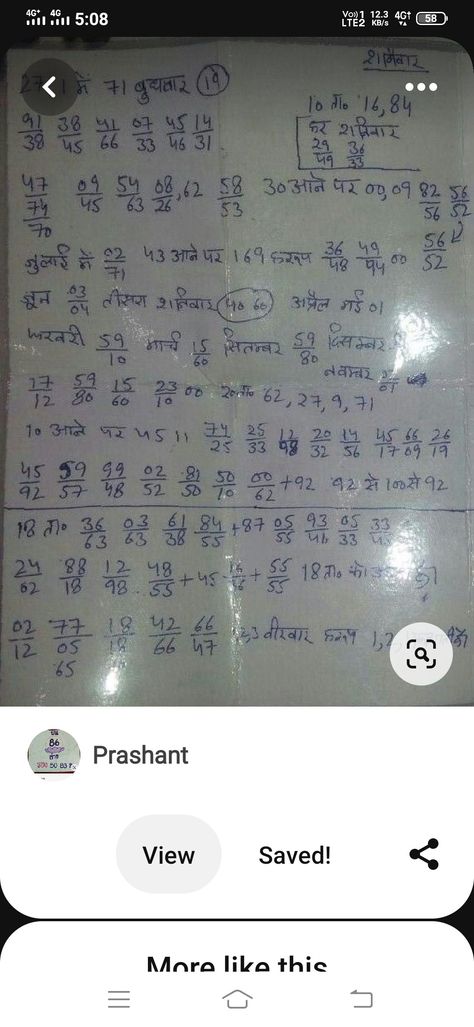 5:08
58
शनिवार
में 71 बुधवार 19
10 ता० 16, 84
हर शनिवार
29/49 36/33
91/38 38/45 41/66 07/33 45/46 14/31
47/74/70 09/45 54/63 08/26, 62 58/53 30 आने पर 00, 09 82/56 56/52
56/52
जुलाई में 02/71 43 आने पर 169 हरूप 36/48 49/94 00
जून 03/04 तीसरा शनिवार 40 60 अप्रैल मई 01
फरवरी 59/10 मार्च 15/60 सितम्बर 59/80 दिसम्बर
नवम्बर
17/12 59/80 15/60 23/10 00 20 ता० 62, 27, 9, 71
10 आने पर 45 11 74/25 25/33 12/98 20/32 14/56 45/17 66/09 26/19
45/92 59/57 99/48 02/52 81/50 50/10 00/62 + 92 92 से 100 से 92
18 ता० 36/63 03/63 61/38 84/55 + 87 05/55 93/41 05/33 33/45
24/02 88/18 12/98 48/55 + 45 + 55/55 18 ता० को
02/12 77/05/65 18/18 42/66 66/47 वीरवार हरूप 1,2
Prashant
View
Saved!
More like this